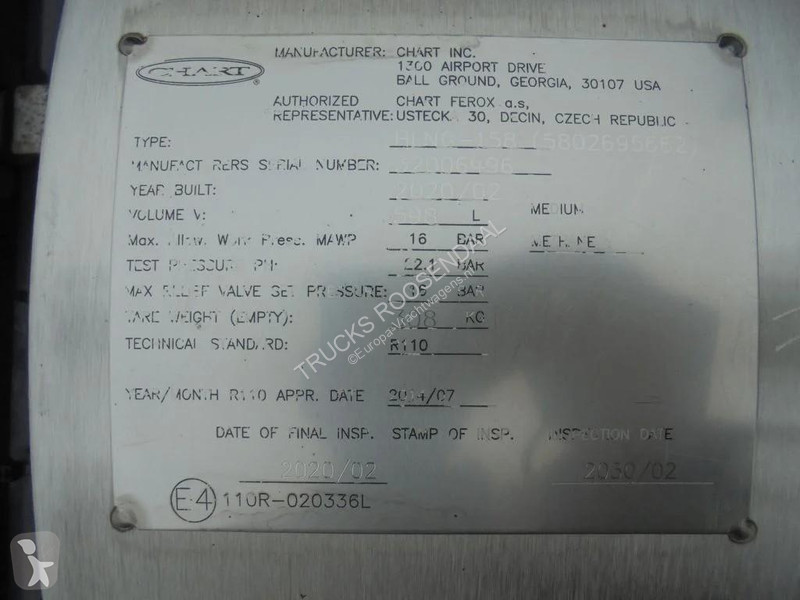 CHART
MANUFACTURER: CHART INC.
1300 AIRPORT DRIVE
BALL GROUND, GEORGIA, 30107 USA
AUTHORIZED CHART FEROX a.s,
REPRESENTATIVE: USTECKA 30, DECIN, CZECH REPUBLIC
TYPE:
MANUFACTURERS SERIAL NUMBER:
YEAR BUILT: 2020/02
VOLUME V: L MEDIUM
Max. Allow. Work Press. MAWP 16 BAR METHANE
TEST PRESSURE PH: 22.1 BAR
MAX RELIEF VALVE SET PRESSURE: 16 BAR
TARE WEIGHT (EMPTY): KG
TECHNICAL STANDARD: R110
YEAR/MONTH R110 APPR. DATE 2014/07
DATE OF FINAL INSP. STAMP OF INSP. INSPECTION DATE
2020/02 2030/02
E4 110R-020336L
TRUCKS ROOSENDAAL
©Europa-Vrachtwagens.nl